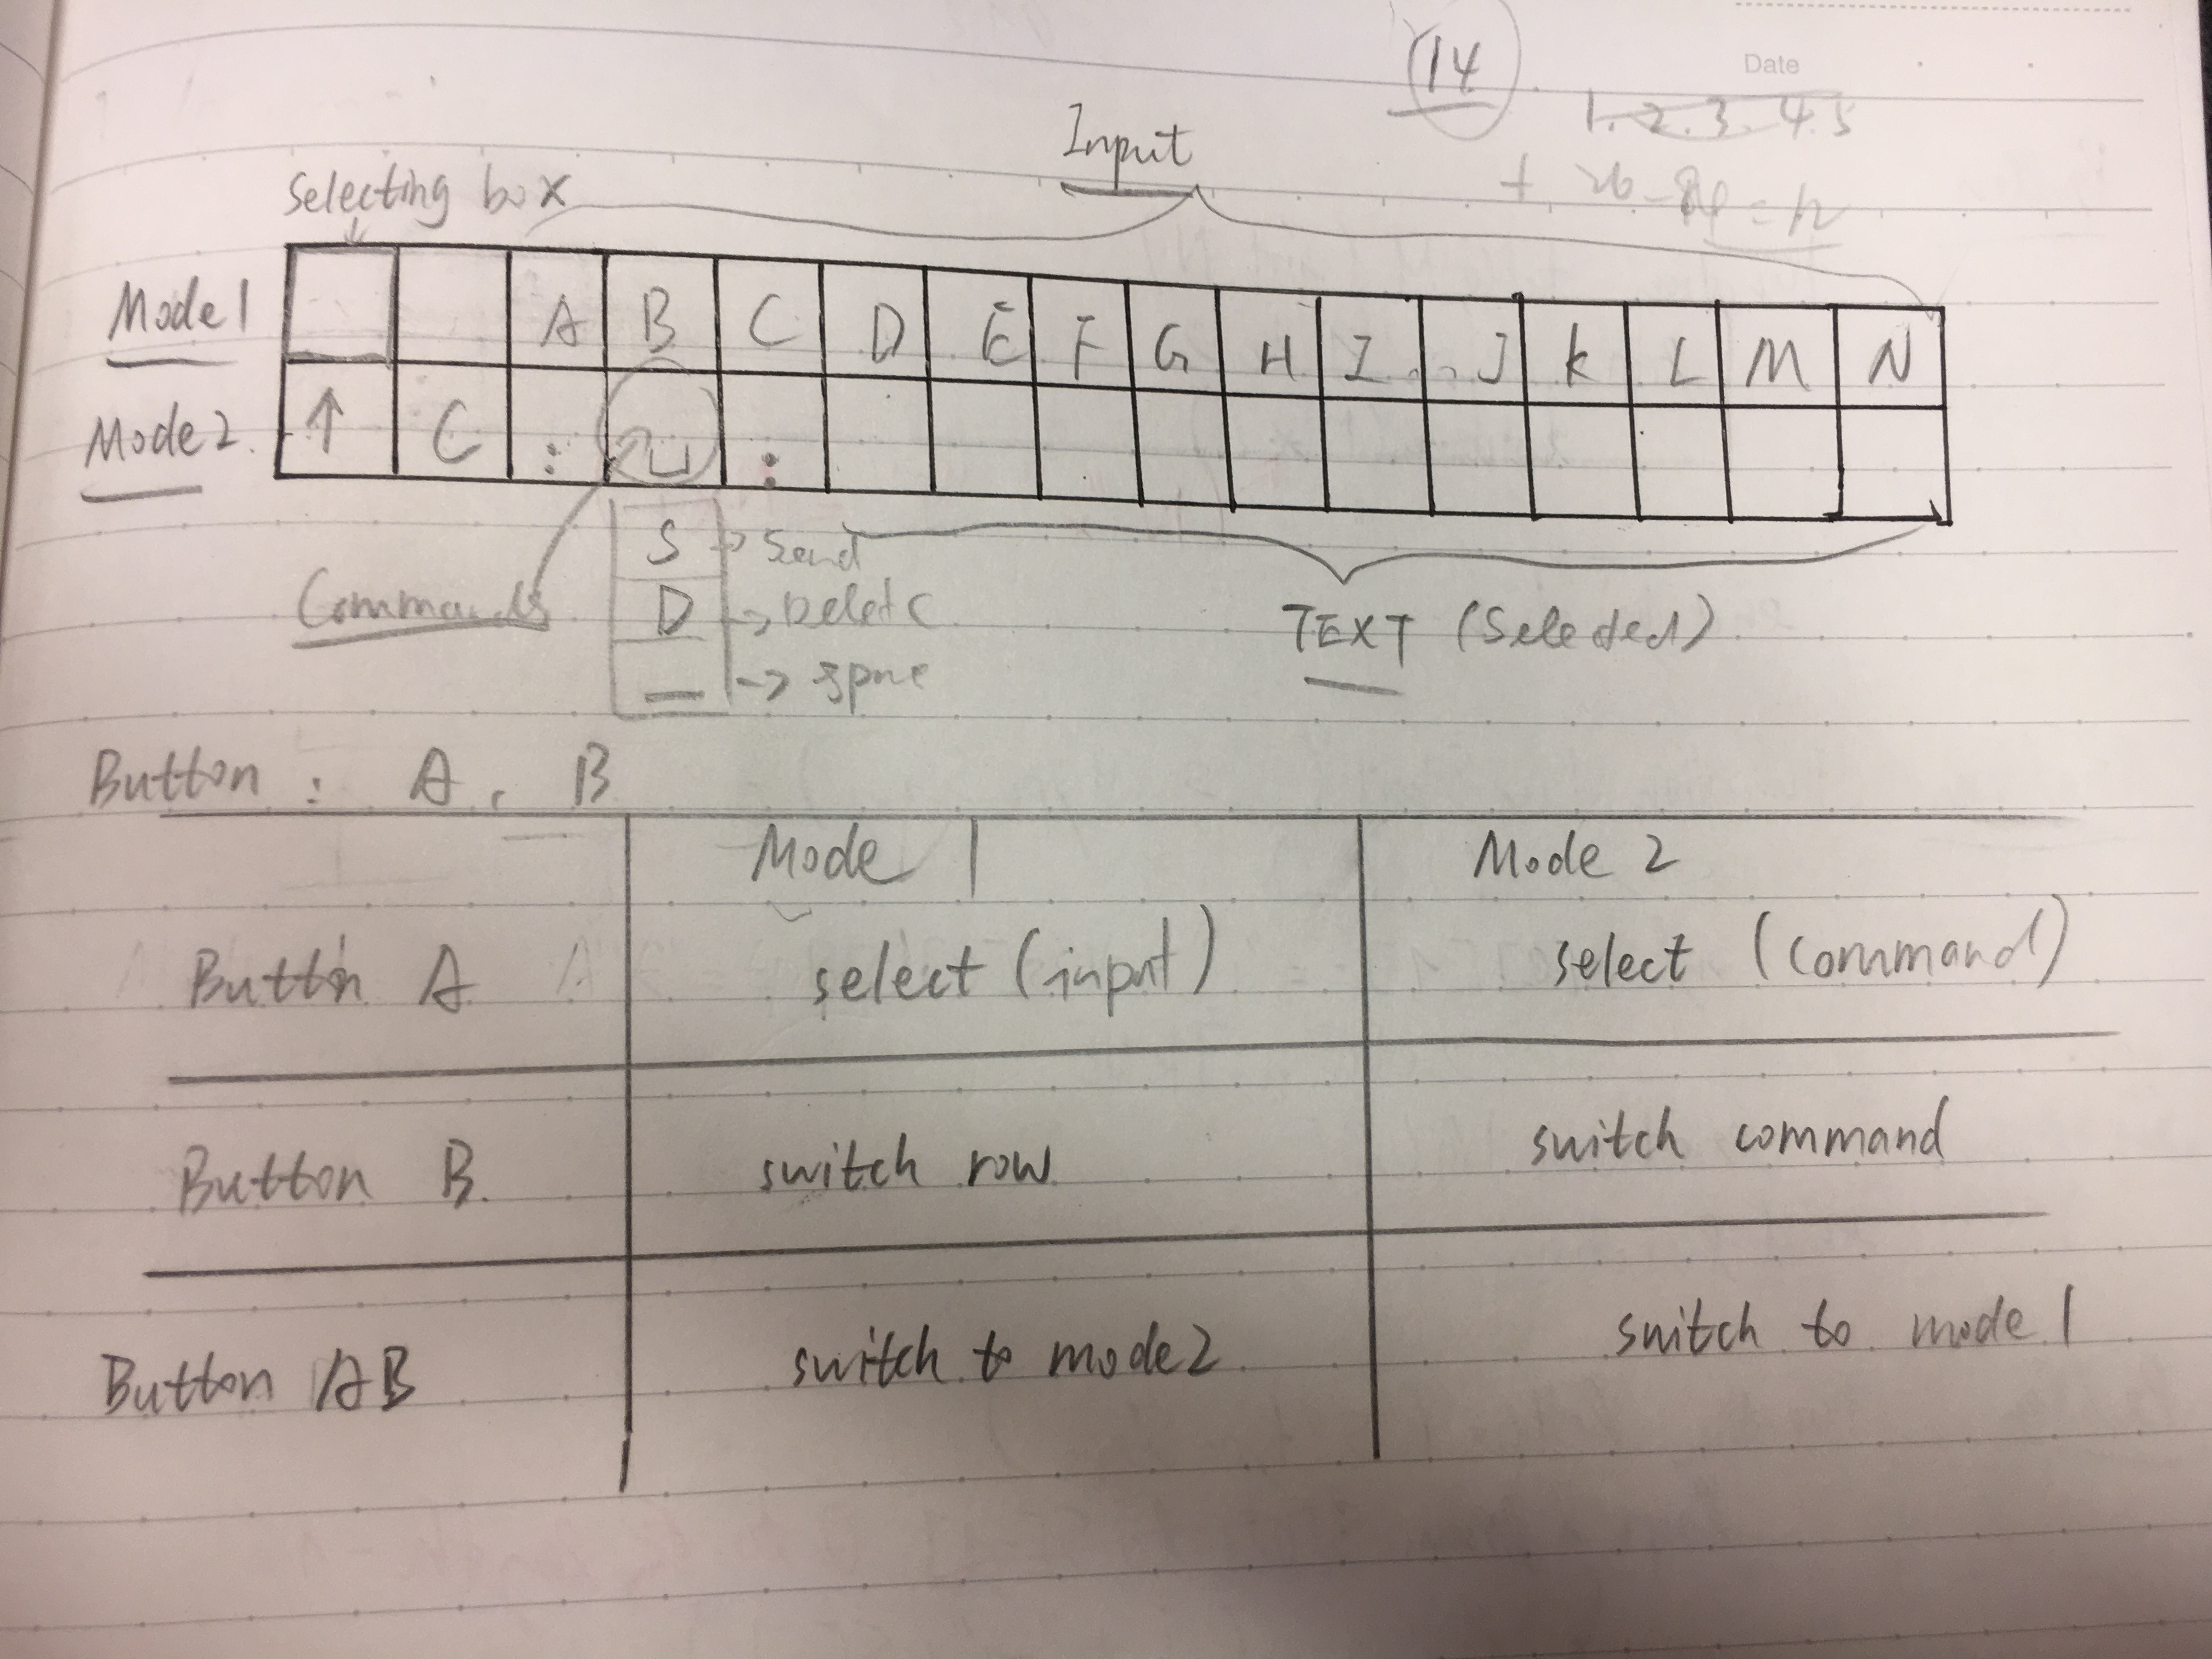 14
Date
1. 2. 3. 4. 5
Input
Selecting box
Mode1 A B C D E F G H I J K L M N
Mode2. ↑ C : :
S -> Send
Commands D -> Delete
_ -> space
TEXT (Selected)
Button : A, B
Mode 1 Mode 2
Button A select (input) select (command)
Button B. switch row switch command
Button AB switch to mode2. switch to mode 1